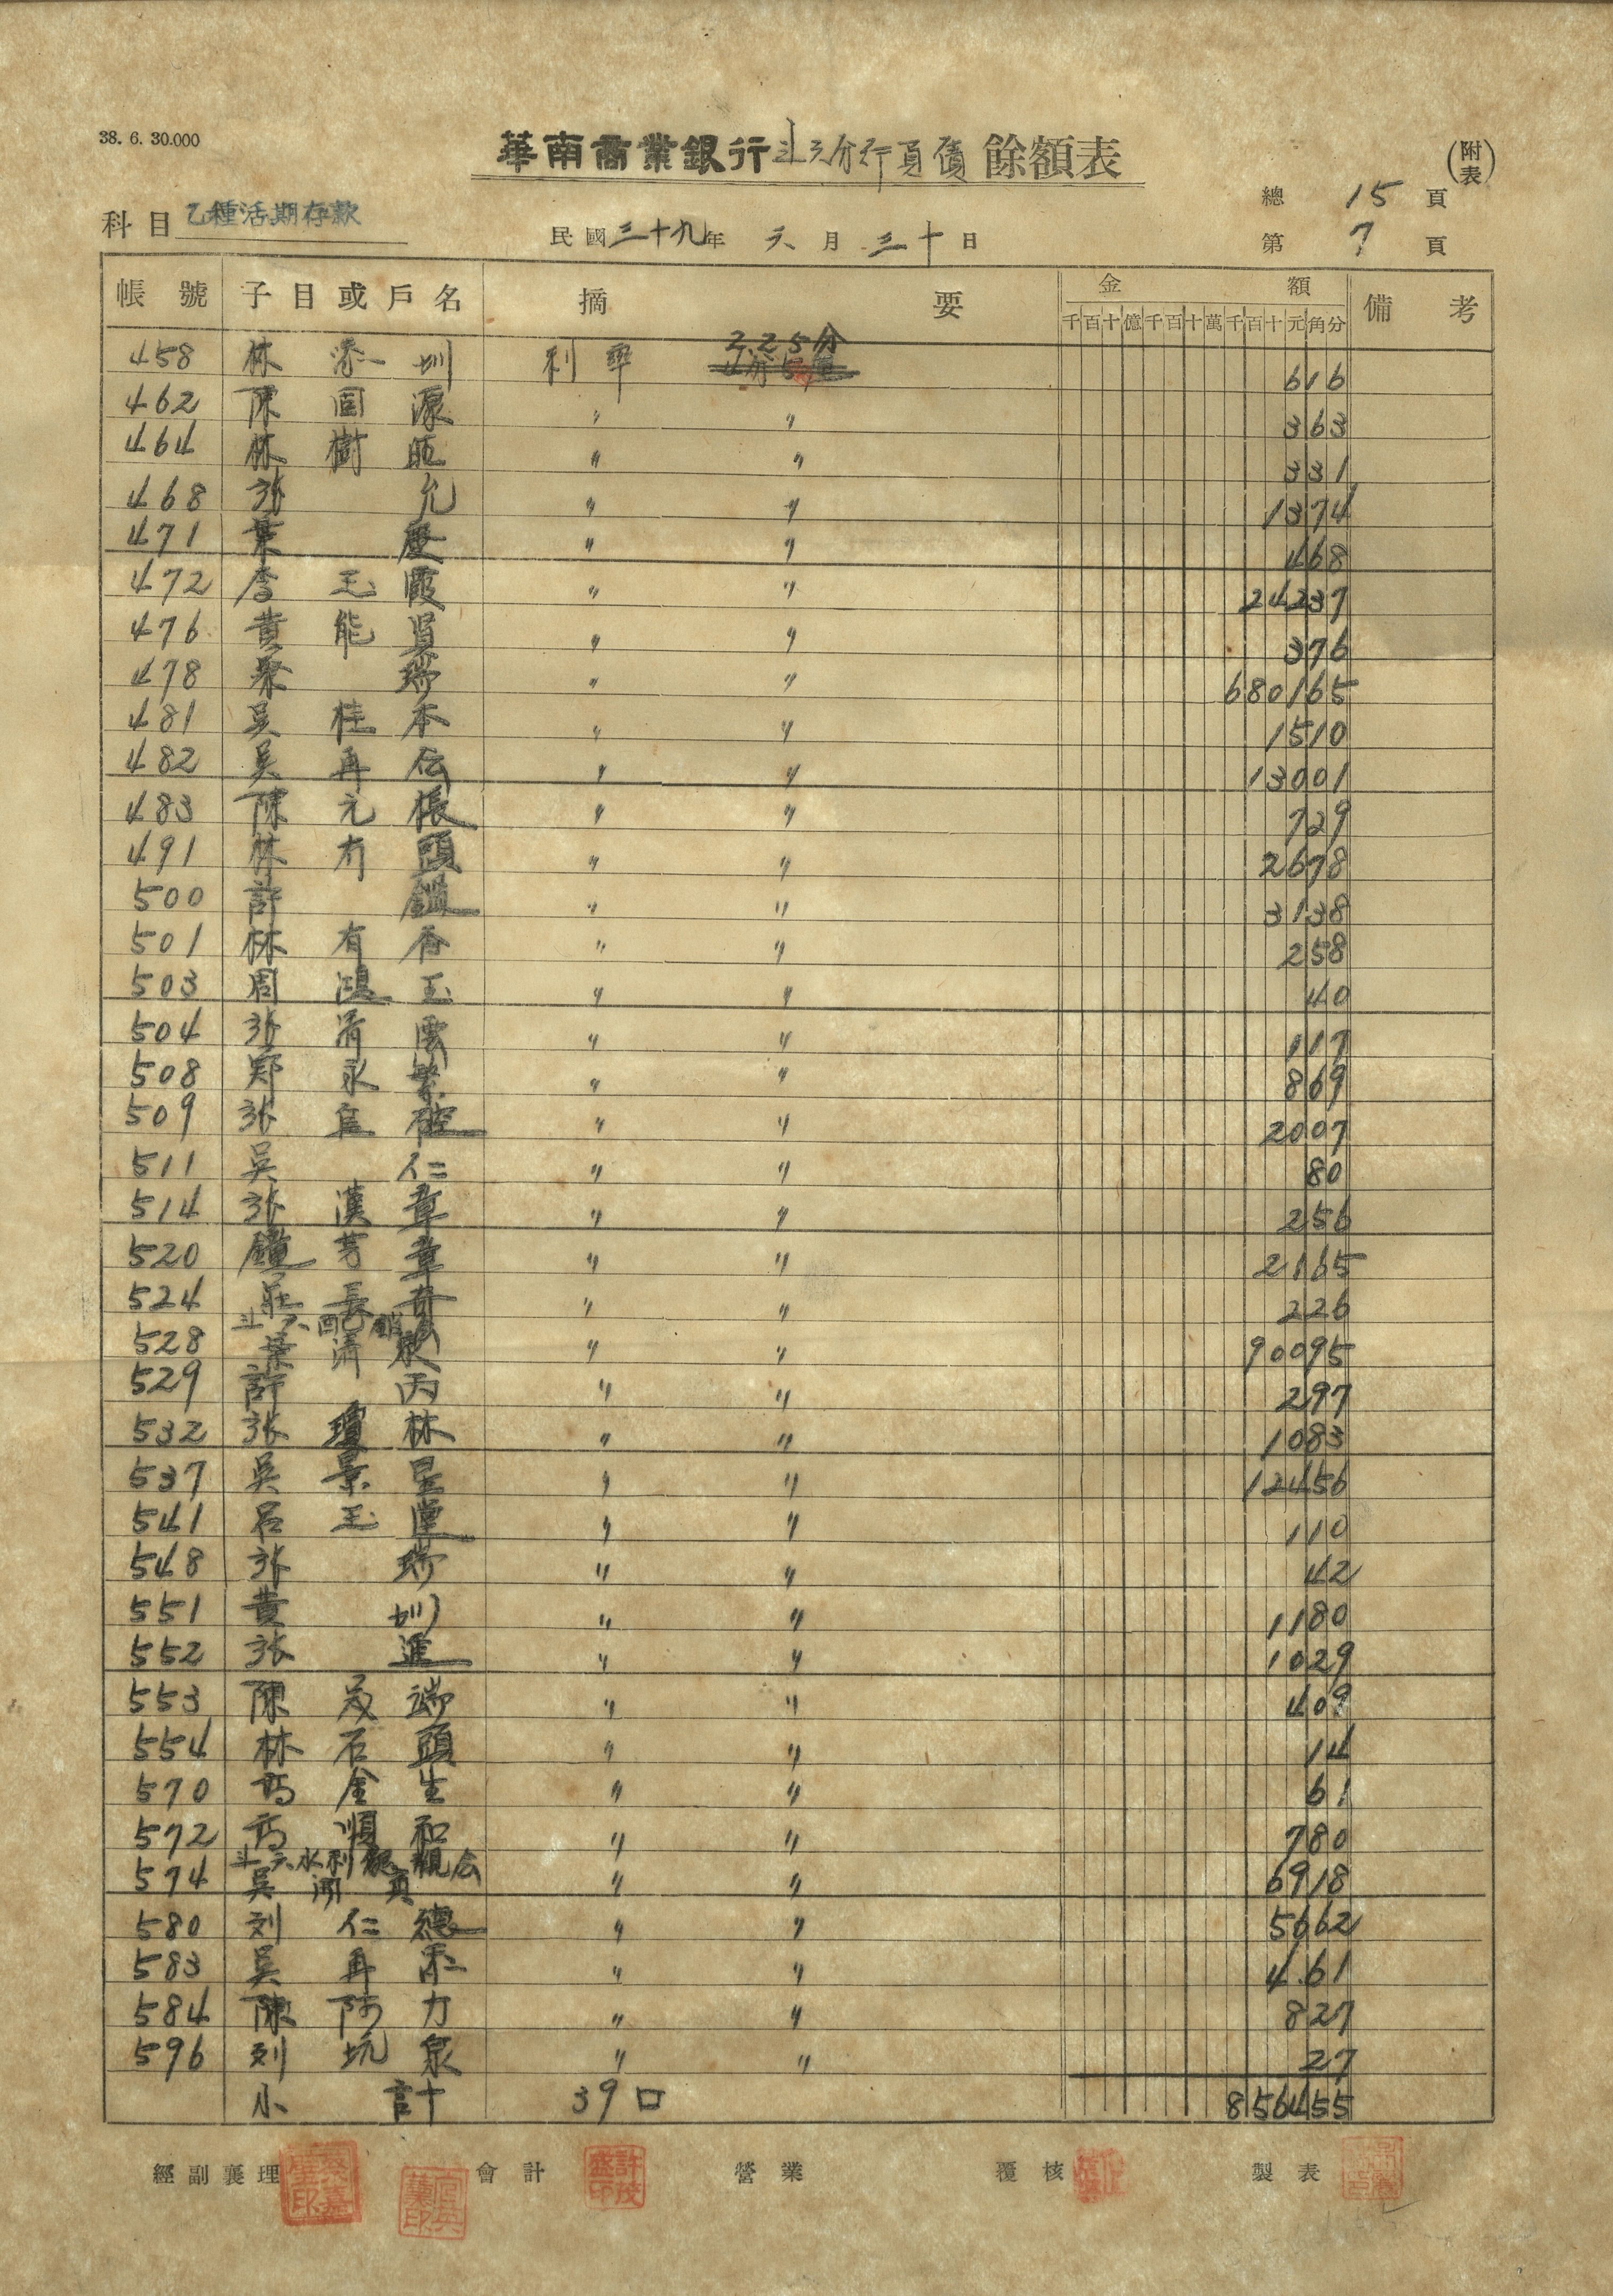 38. 6. 30.000
華南商業銀行斗六分行負債餘額表
(附表)
總 15 頁
科目 乙種活期存款
民國三十九年 六月 三十日
第 7 頁
帳號 子目或戶名 摘要 金額 備考
千百十億千百十萬千百十元角分
2.25分
458 林添圳 利率 616
462 陳固源 〃 〃 363
464 林樹旺 〃 〃 331
468 張允 〃 〃 1374
471 葉慶 〃 〃 468
472 李玉霞 〃 〃 24237
476 黃能 〃 〃 376
478 蔡瑞 〃 〃 680165
481 吳桂本 〃 〃 1510
482 吳再伝 〃 〃 13001
483 陳元根 〃 〃 729
491 林有頭 〃 〃 2678
500 許鎰 〃 〃 3138
501 林有香 〃 〃 258
503 周鴻玉 〃 〃 40
504 張清雲 〃 〃 117
508 鄭永繁 〃 〃 869
509 張 〃 〃 2007
511 吳仁 〃 〃 80
514 張漢章 〃 〃 256
520 鐘芳章 〃 〃 2165
524 莊長奇 〃 〃 226
斗六配銷
528 葉清 〃 〃 90095
529 許丙 〃 〃 297
532 張瓊林 〃 〃 1083
537 吳景星 〃 〃 12456
541 呂玉堂 〃 〃 110
548 張瑞 〃 〃 42
551 黃圳 〃 〃 1180
552 張進 〃 〃 1029
553 陳茂端 〃 〃 409
554 林石頭 〃 〃 14
570 高金生 〃 〃 61
572 高順和 〃 〃 780
斗六水利親会
574 吳 〃 〃 6918
580 刘仁德 〃 〃 5662
583 吳再添 〃 〃 461
584 陳阿力 〃 〃 827
596 刘坑泉 〃 〃 27
小計 39口 856455
經副襄理 會計 營業 覆核 製表
許茂盛印